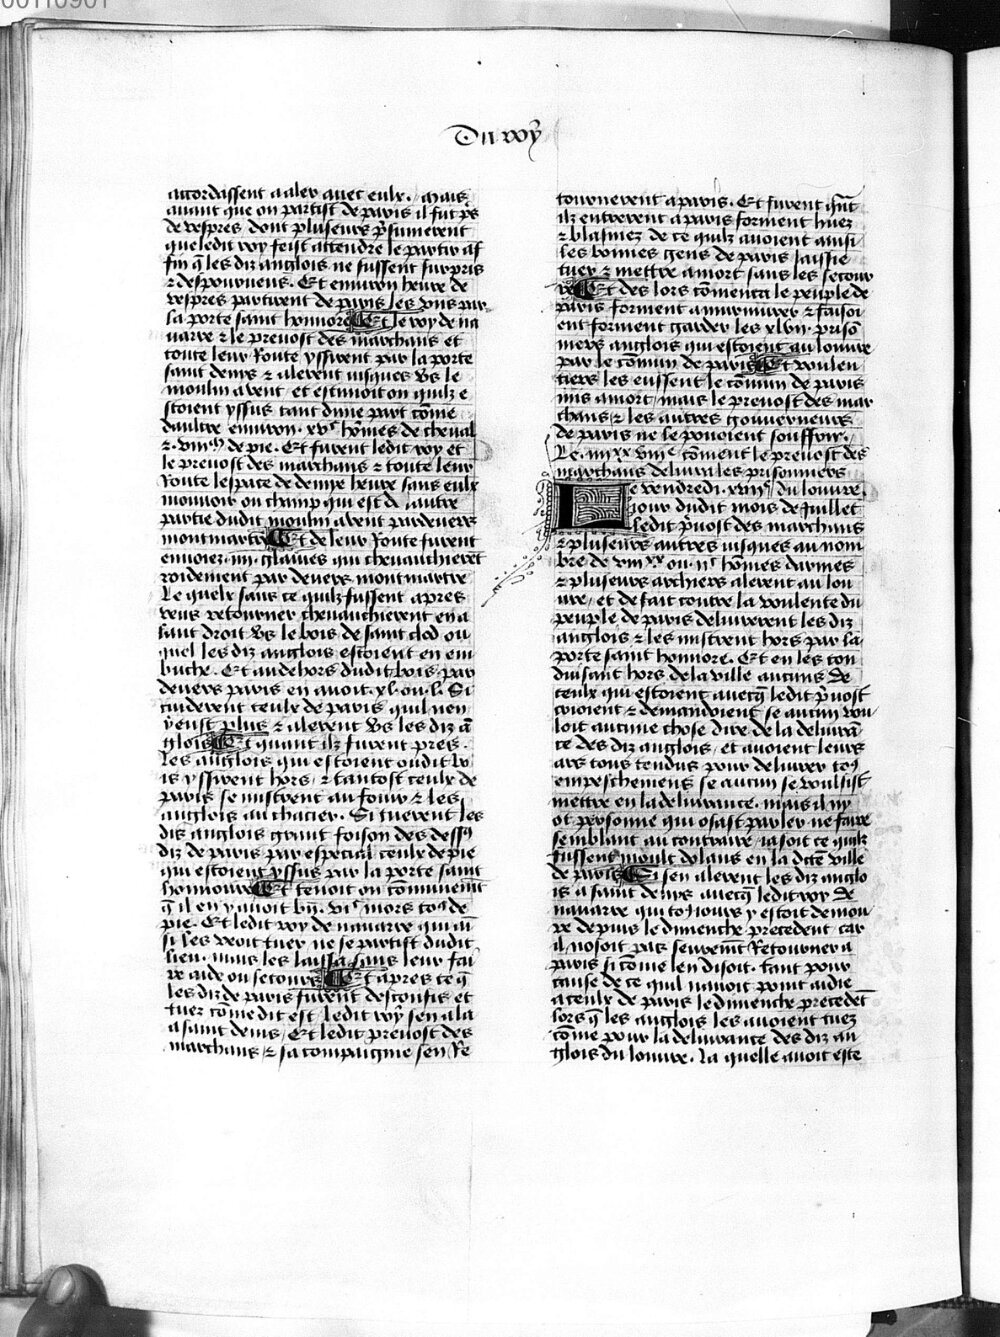 00110901
Du roy
accordassent a aler auec eulx. Mais
auant que on partist de paris il fut ps
de vespres dont plusieurs psumerent
que ledit roy feist attendre le partir af
fin q̄ les diz anglois ne fussent surpris
⁊ despourueus. Et enuiron heure de
vespres partirent de paris les vns par
la porte saint honnore Et le roy de na
uarre ⁊ le preuost des marchans et
toute leur Route yssirent par la porte
saint denis ⁊ alerent iusques vs le
moulin a vent et estimoit on quilz e
stoient yssus tant dune part cōme
daultre enuiron. xvͨ hōmes de cheual
⁊. viiiᵐ de pie. Et furent ledit roy et
le preuost des marchans ⁊ toute leur
Route lespace de demye heure sans eulx
mouuoir ou champ qui est dautre
partie dudit moulin a vent pardeuers
montmartre Et de leur Route furent
enuoiez. iii. glaiues qui cheuauchierent
roidement par deuers montmartre
Le quelx sans ce quilz fussent apres
venus retourner cheuauchierent en a
lant droit vs le bois de saint clod ou
quel les diz anglois estoient en em
busche. Et au dehors dudit bois par
deuers paris en auoit. xl. ou. l. Si
cuiderent ceulx de paris quil nen
y eust plus ⁊ alerent vs les diz ā
glois Et quant ilz furent pres.
Les anglois qui estoient oudit bo
is yssirent hors. ⁊ tantost ceulx de
paris se mistrent au fouir ⁊ les
anglois au chacier. Si tuerent les
dis anglois grant foison des dessꝰ
diz de paris par especial ceulx de pie
qui estoient yssus par la porte saint
honnoure Et tenoit on communemt
q̄ il en y auoit bn̄. viͨ mors toꝰ de
pie. Et ledit roy de nauarre qui ain
si les veoit tuer ne se partist dudit
lieu. mais les laissa sans leur fai
re aide ou secours Et apres ce q̄
les diz de paris furent desconfis et
tuez cōme dit est ledit roy sen ala
a saint denis, Et ledit preuost des
marchans ⁊ sa compaignie sen Re
tournerent a paris. Et furent qnt
ilz entrerent a paris forment huez
⁊ blasmez de ce quilz auoient ainsi
les bonnes gens de paris laissie
tuer ⁊ mettre a mort sans les secour
re Et des lors cōmenca le peuple de
paris forment a murmurer ⁊ faisoi
ent forment garder les xlvii. prison
niers anglois qui estoient au louure
par le cōmun de paris Et voulen
tiers les eussent le cōmun de paris
mis a mort, mais le preuost des mar
chans ⁊ les autres gouuerneurs
de paris ne le pouoient souffrir.
Le. iiiixx viiiͤ cōment le preuost des
marchans deliura les prisonniers
Le vendredi. xviiͤ du louure.
jour dudit mois de Juillet
ledit puost des marchans
⁊ plusieurs autres iusques au nom
bre de viiixx ou. iiͨ hōmes darmes
⁊ plusieurs archiers alerent au lou
ure, et de fait contre la voulente du
peuple de paris deliurerent les diz
anglois ⁊ les mistrent hors par la
porte saint honnore. Et en les con
duisant hors de la ville aucuns de
ceulx qui estoient auecq̄ ledit puost
crioient ⁊ demandoient se aucun vou
loit aucune chose dire de la deliurā
ce des diz anglois, et auoient leurs
ars tous tendus pour deliurer toꝰ
empeschemens se aucun se voulsist
mettre en la deliurance. mais il ny
ot personne qui osast parler ne faire
semblant au contraire, ia soit ce quilz
fussent moult dolans en la dcte ville
de paris Si sen alerent les diz anglo
is a saint denys auecq̄ ledit roy de
nauarre qui toꝰiours y estoit demou
re depuis le dimenche precedent car
il nosoit pas seuremt Retourner a
paris si cōme len disoit. tant pour
cause de ce quil nauoit point aidie
a ceulx de paris le dimenche precedēt
lors q̄ les anglois les auoient tuez
cōme pour la deliurance des diz an
glois du louure. La quelle auoit este